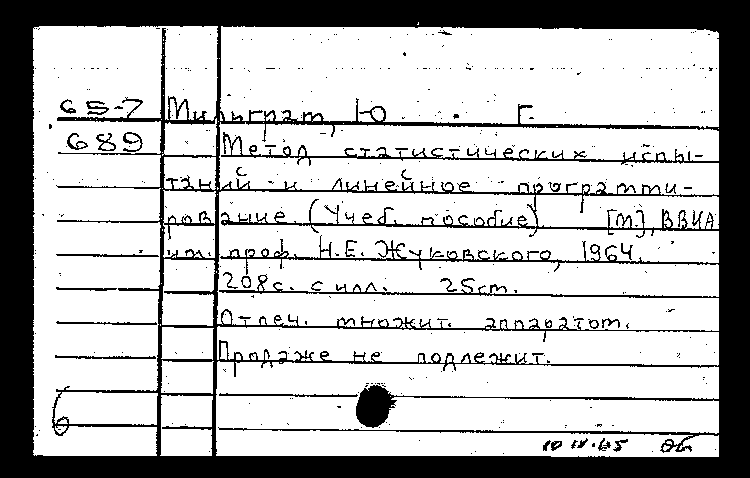 65-7 Милиграт, Ю. Г.
689 Метод статистических испы-
таний и линейное программи-
рование. (Учеб. пособие) [М], ВВИА
им. проф. Н.Е. Жуковского, 1964.
208с. с илл. 25см.
Отпеч. множит. аппаратом.
Продаже не подлежит.
б